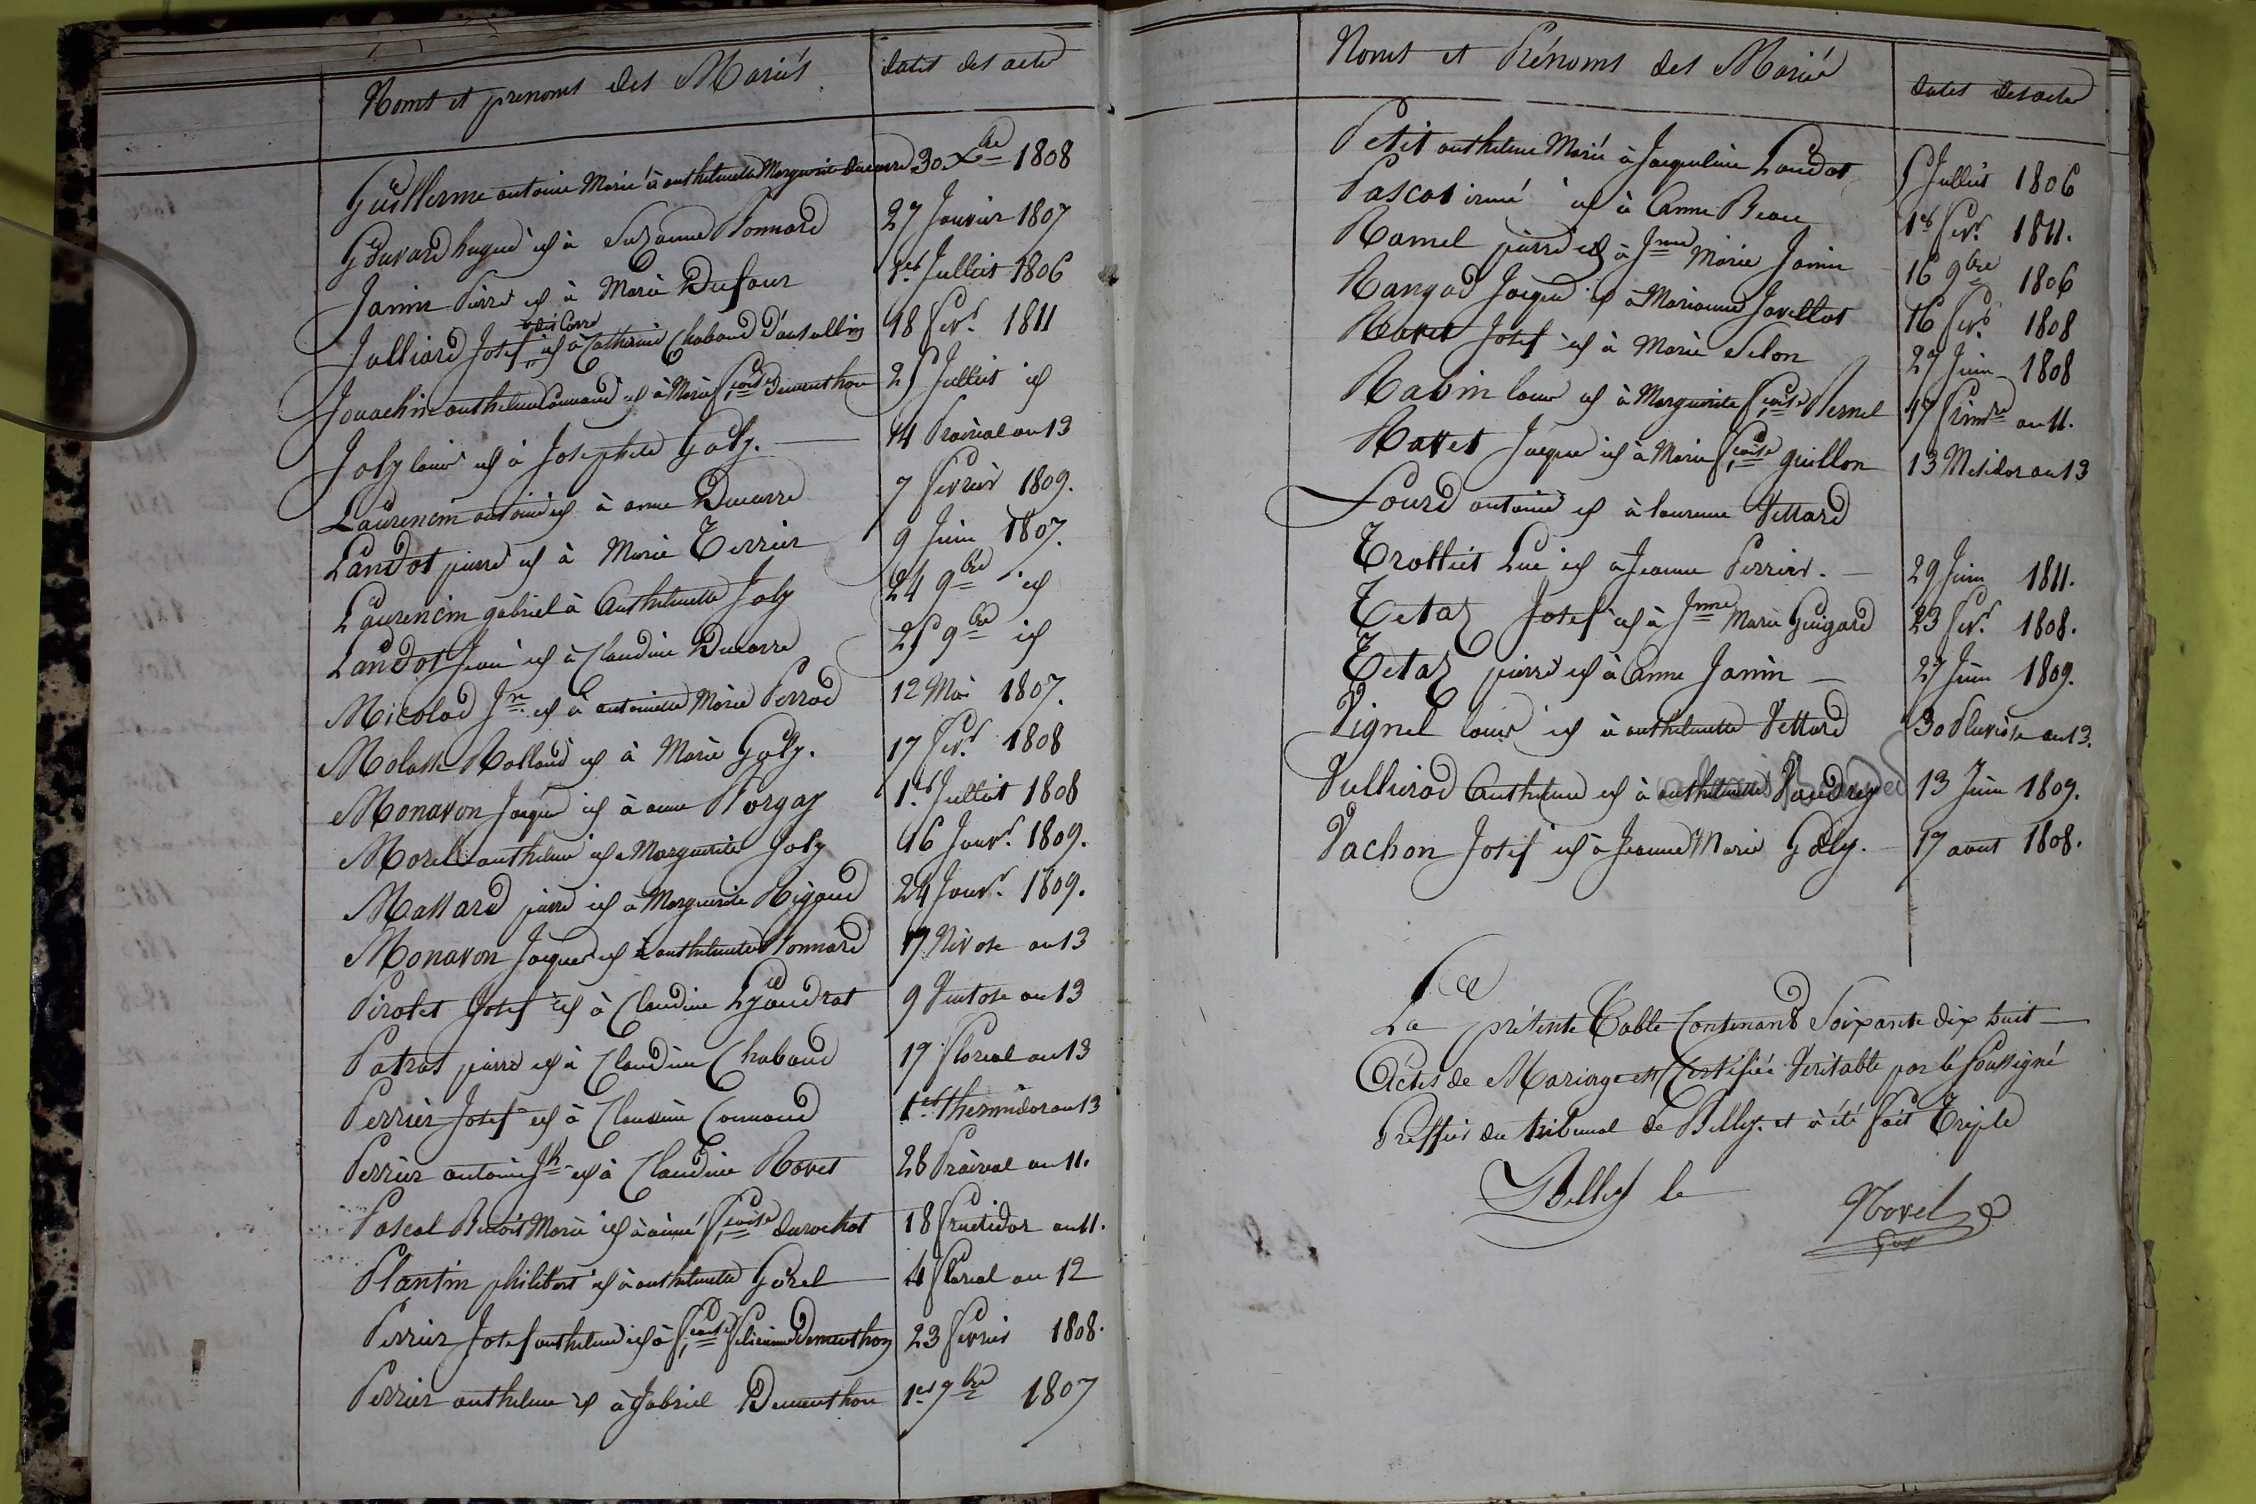 Noms et prenoms des Mariés
dates des actes
Guillerme antoine Marié à anthelmette Marguerite Ducarre 30 Xbre 1808
Gduvard hugue id à Suzanne Bonnard 27 Janvier 1807
Janin Pierre id à Marie Dufour 1er Juillet 1806
Julliard Josef id à Catherine Chaboud 18 fevr 1811
Jouachin anthelme id à Marie fcoise Dementhon 25 Juillet id
Joly louis id à Josephete Goly. 14 Prairial an 13
Laurencin antoine id à anne Ducarre 7 fevrier 1809.
Landot pierre id à Marie Terrier 9 Juin 1807.
Laurencin gabriel à Anthelmette Joly 24 9bre id
Landot Jean id à Claudine Ducarre 25 9bre id
Micolod Jn id à antoinette Marie Perrod 12 Mai 1807.
Molasse Rolland id à Marie Goly. 17 fevr 1808
Monavon Jaque id à anne Borgay 1er Juillet 1808
Morel anthelme id à Marguerite Joly 16 Janvr 1809.
Massard pierre id à Marguerite Rigaud 24 Janvr. 1809.
Monavon Jaques id à anthelmette Bonnard 17 Nivose an 13
Pirolet Josef id à Claudine Lyaudrat 9 Ventose an 13
Patrat pierre id à Claudine Chaboud 19 floreal an 13
Perrier Josef id à Claudine Connand 1er thermidor an 13
Perrier antoine Jh id à Claudine Rovet 28 Prairial an 11.
Pascal Benoit Marie id à aimé fcoise Durochat 18 fructidor an 11.
Plantin philibert id à anthelmette Gorel 4 floreal an 12
Perrier Josef anthelme id à fcoise felicienne Dementhon 23 fevrier 1808.
Perrier anthelme id à Gabriel Dementhon 1er 9bre 1807
Noms et Prénoms des Mariés
dates des actes
Petit anthelme Marié à Jaqueline Landot 5 Juillet 1806
Pascal irené id à Anne Beau 1er fevr. 1811.
Ramel pierre id à Jnne Marie Janin 16 9bre 1806
Rangod Jaque id à Marianne Javellot 16 fevr 1808
Ravet Josef id à Marie Selon 27 Juin 1808
Rabin louis id à Marguerite fcoise Pernel 17 frimre an 11.
Rattet Jaque id à Marie fcoise guillon 13 Mesidor an 13
Sourd antoine id à laurence Vettard
Trolliet Luc id à Jeanne Perrier. 29 Juin 1811.
Tetaz Josef id à Jnne Marie Guigard 23 fevr. 1808.
Tetaz pierre id à Anne Janin 27 Juin 1809.
Vignel louis id à anthelmette Vettard 30 Pluviose an 13.
Vullierod Anthelme id à anthelmette Vaudrey 13 Juin 1809.
Vachon Josef id à Jeanne Marie Goly. 17 aout 1808.
La présente Table Contenant Soixante dix huit
Actes de Mariage est Certifiée Veritable par le soussigné
Greffier du tribunal de Belley. et à été fait Triple
Belley le
Novel